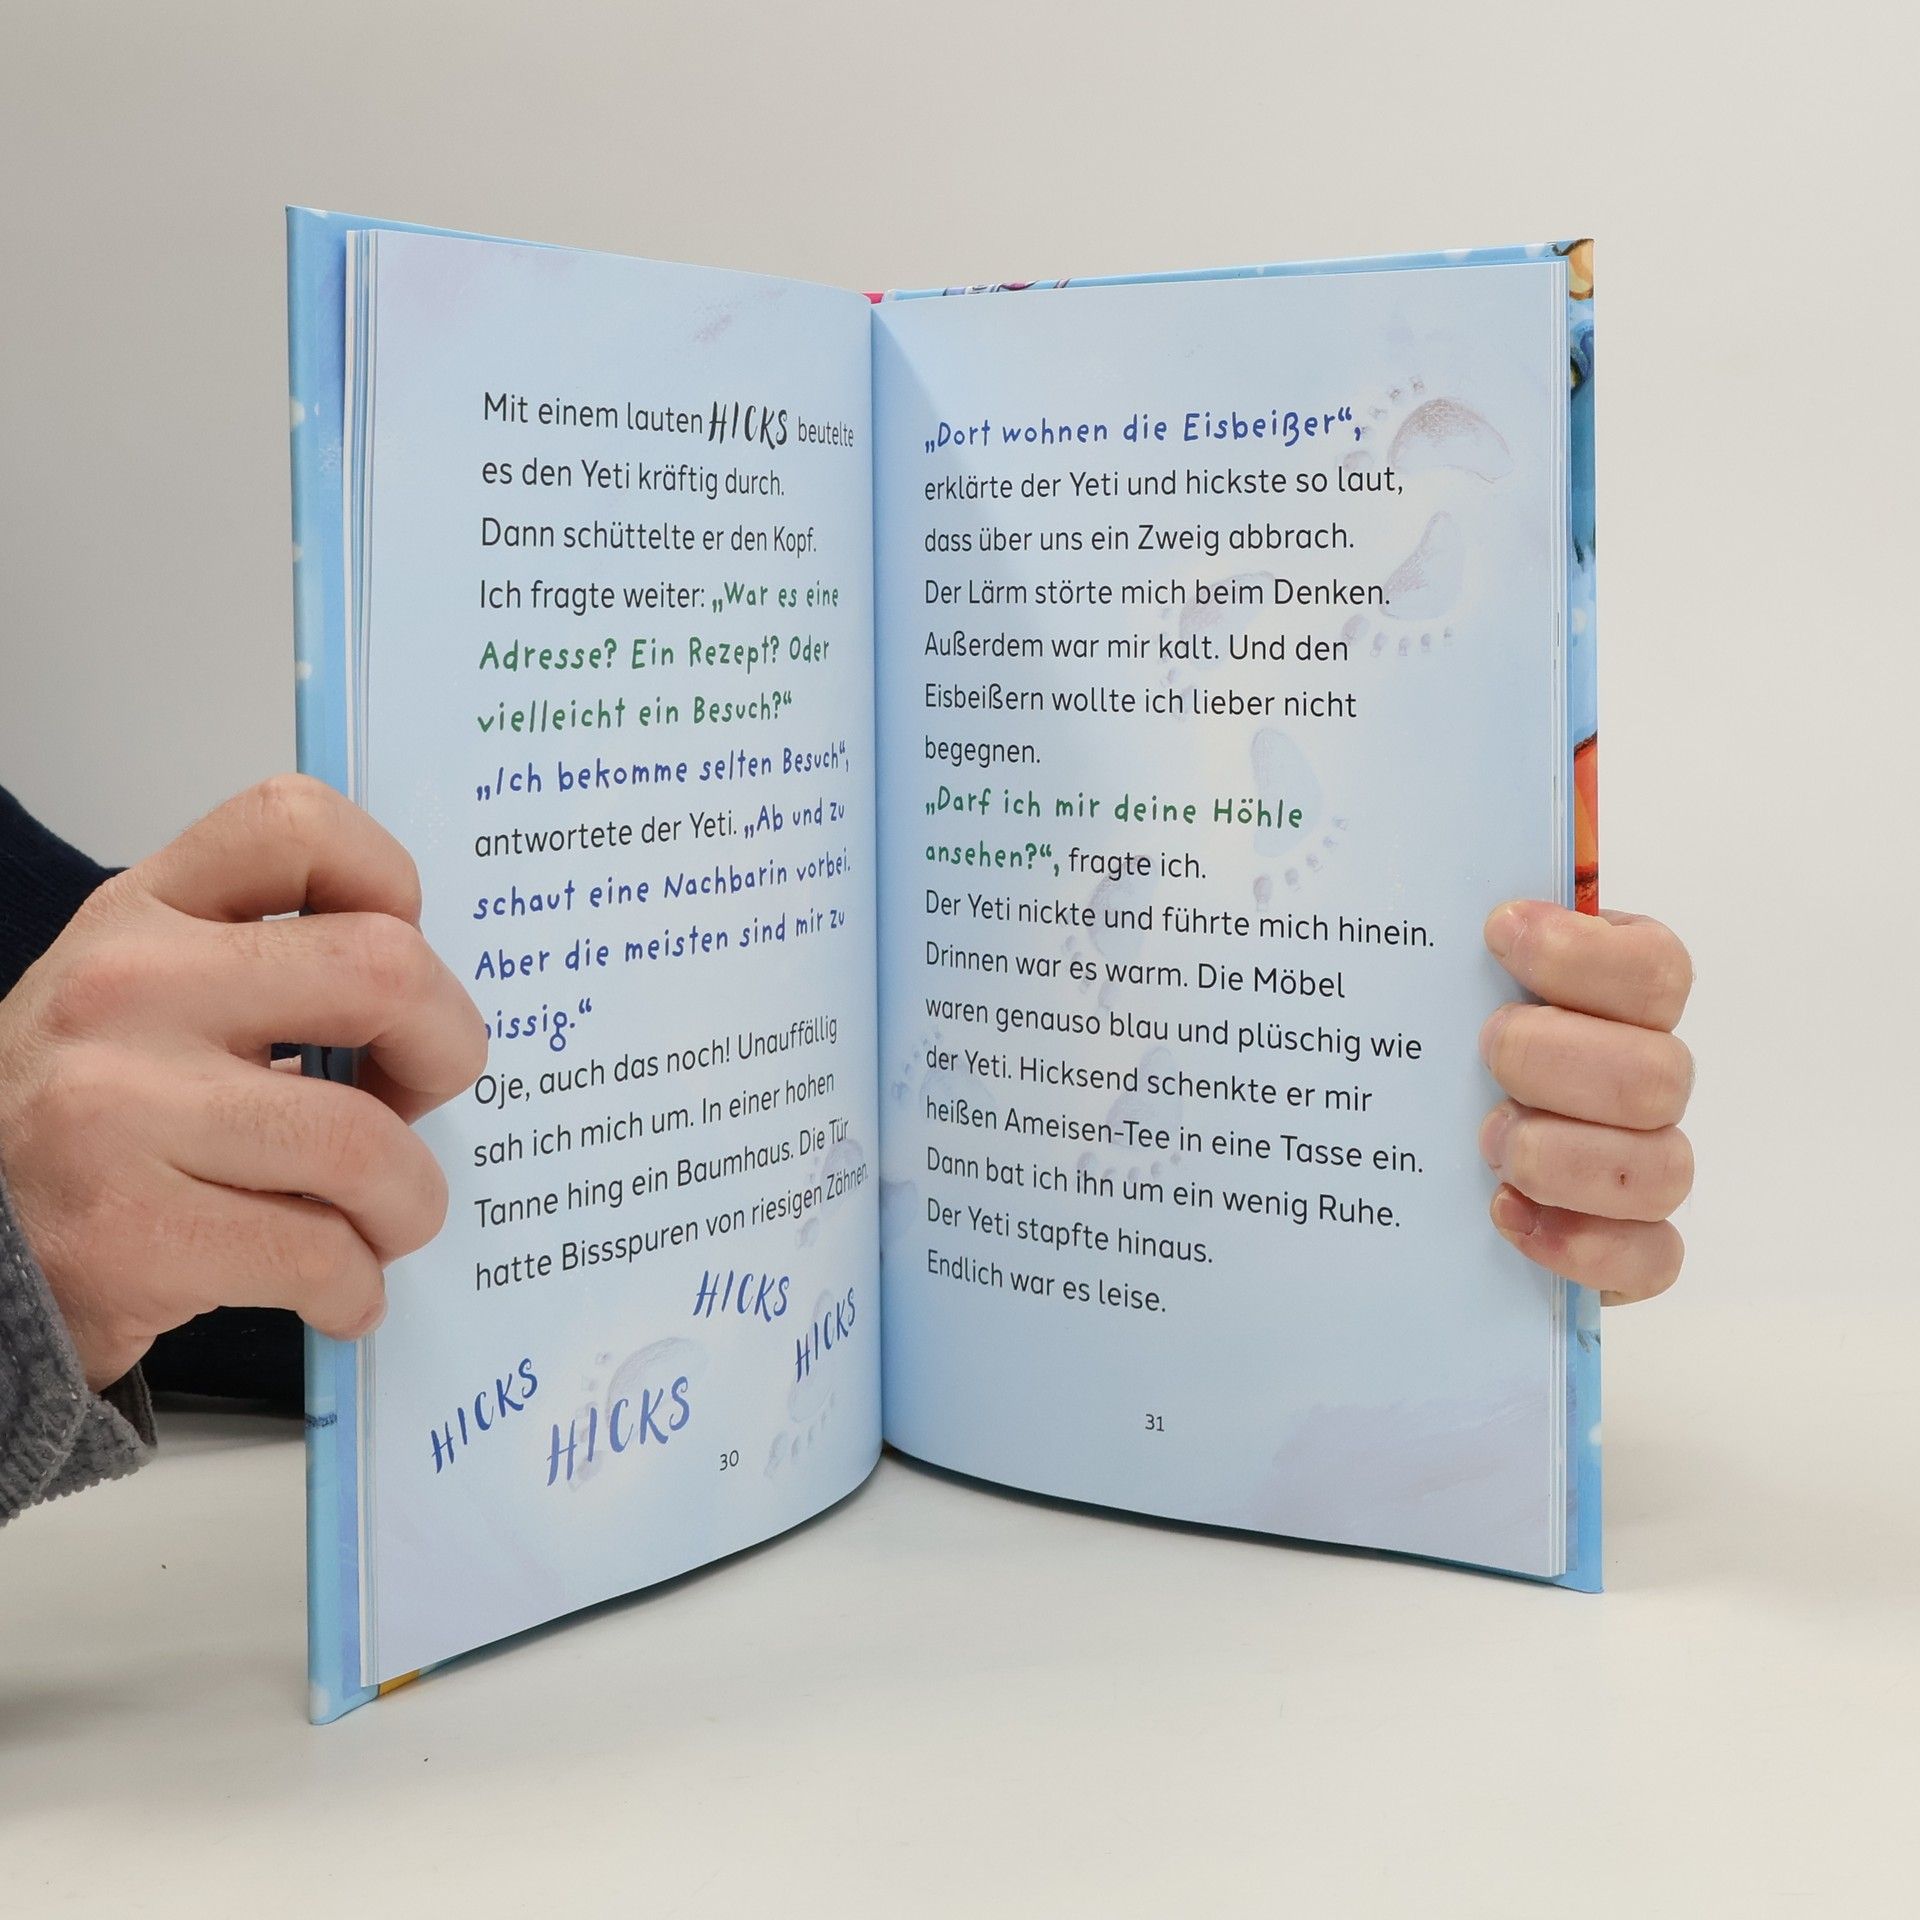 Mit einem lauten HICKS beutelte
es den Yeti kräftig durch.
Dann schüttelte er den Kopf.
Ich fragte weiter: „War es eine
Adresse? Ein Rezept? Oder
vielleicht ein Besuch?“
„Ich bekomme selten Besuch“,
antwortete der Yeti. „Ab und zu
schaut eine Nachbarin vorbei.
Aber die meisten sind mir zu
bissig.“
Oje, auch das noch! Unauffällig
sah ich mich um. In einer hohen
Tanne hing ein Baumhaus. Die Tür
hatte Bissspuren von riesigen Zähnen.
HICKS
HICKS
HICKS
HICKS
30
„Dort wohnen die Eisbeißer“,
erklärte der Yeti und hickste so laut,
dass über uns ein Zweig abbrach.
Der Lärm störte mich beim Denken.
Außerdem war mir kalt. Und den
Eisbeißern wollte ich lieber nicht
begegnen.
„Darf ich mir deine Höhle
ansehen?“, fragte ich.
Der Yeti nickte und führte mich hinein.
Drinnen war es warm. Die Möbel
waren genauso blau und plüschig wie
der Yeti. Hicksend schenkte er mir
heißen Ameisen-Tee in eine Tasse ein.
Dann bat ich ihn um ein wenig Ruhe.
Der Yeti stapfte hinaus.
Endlich war es leise.
31